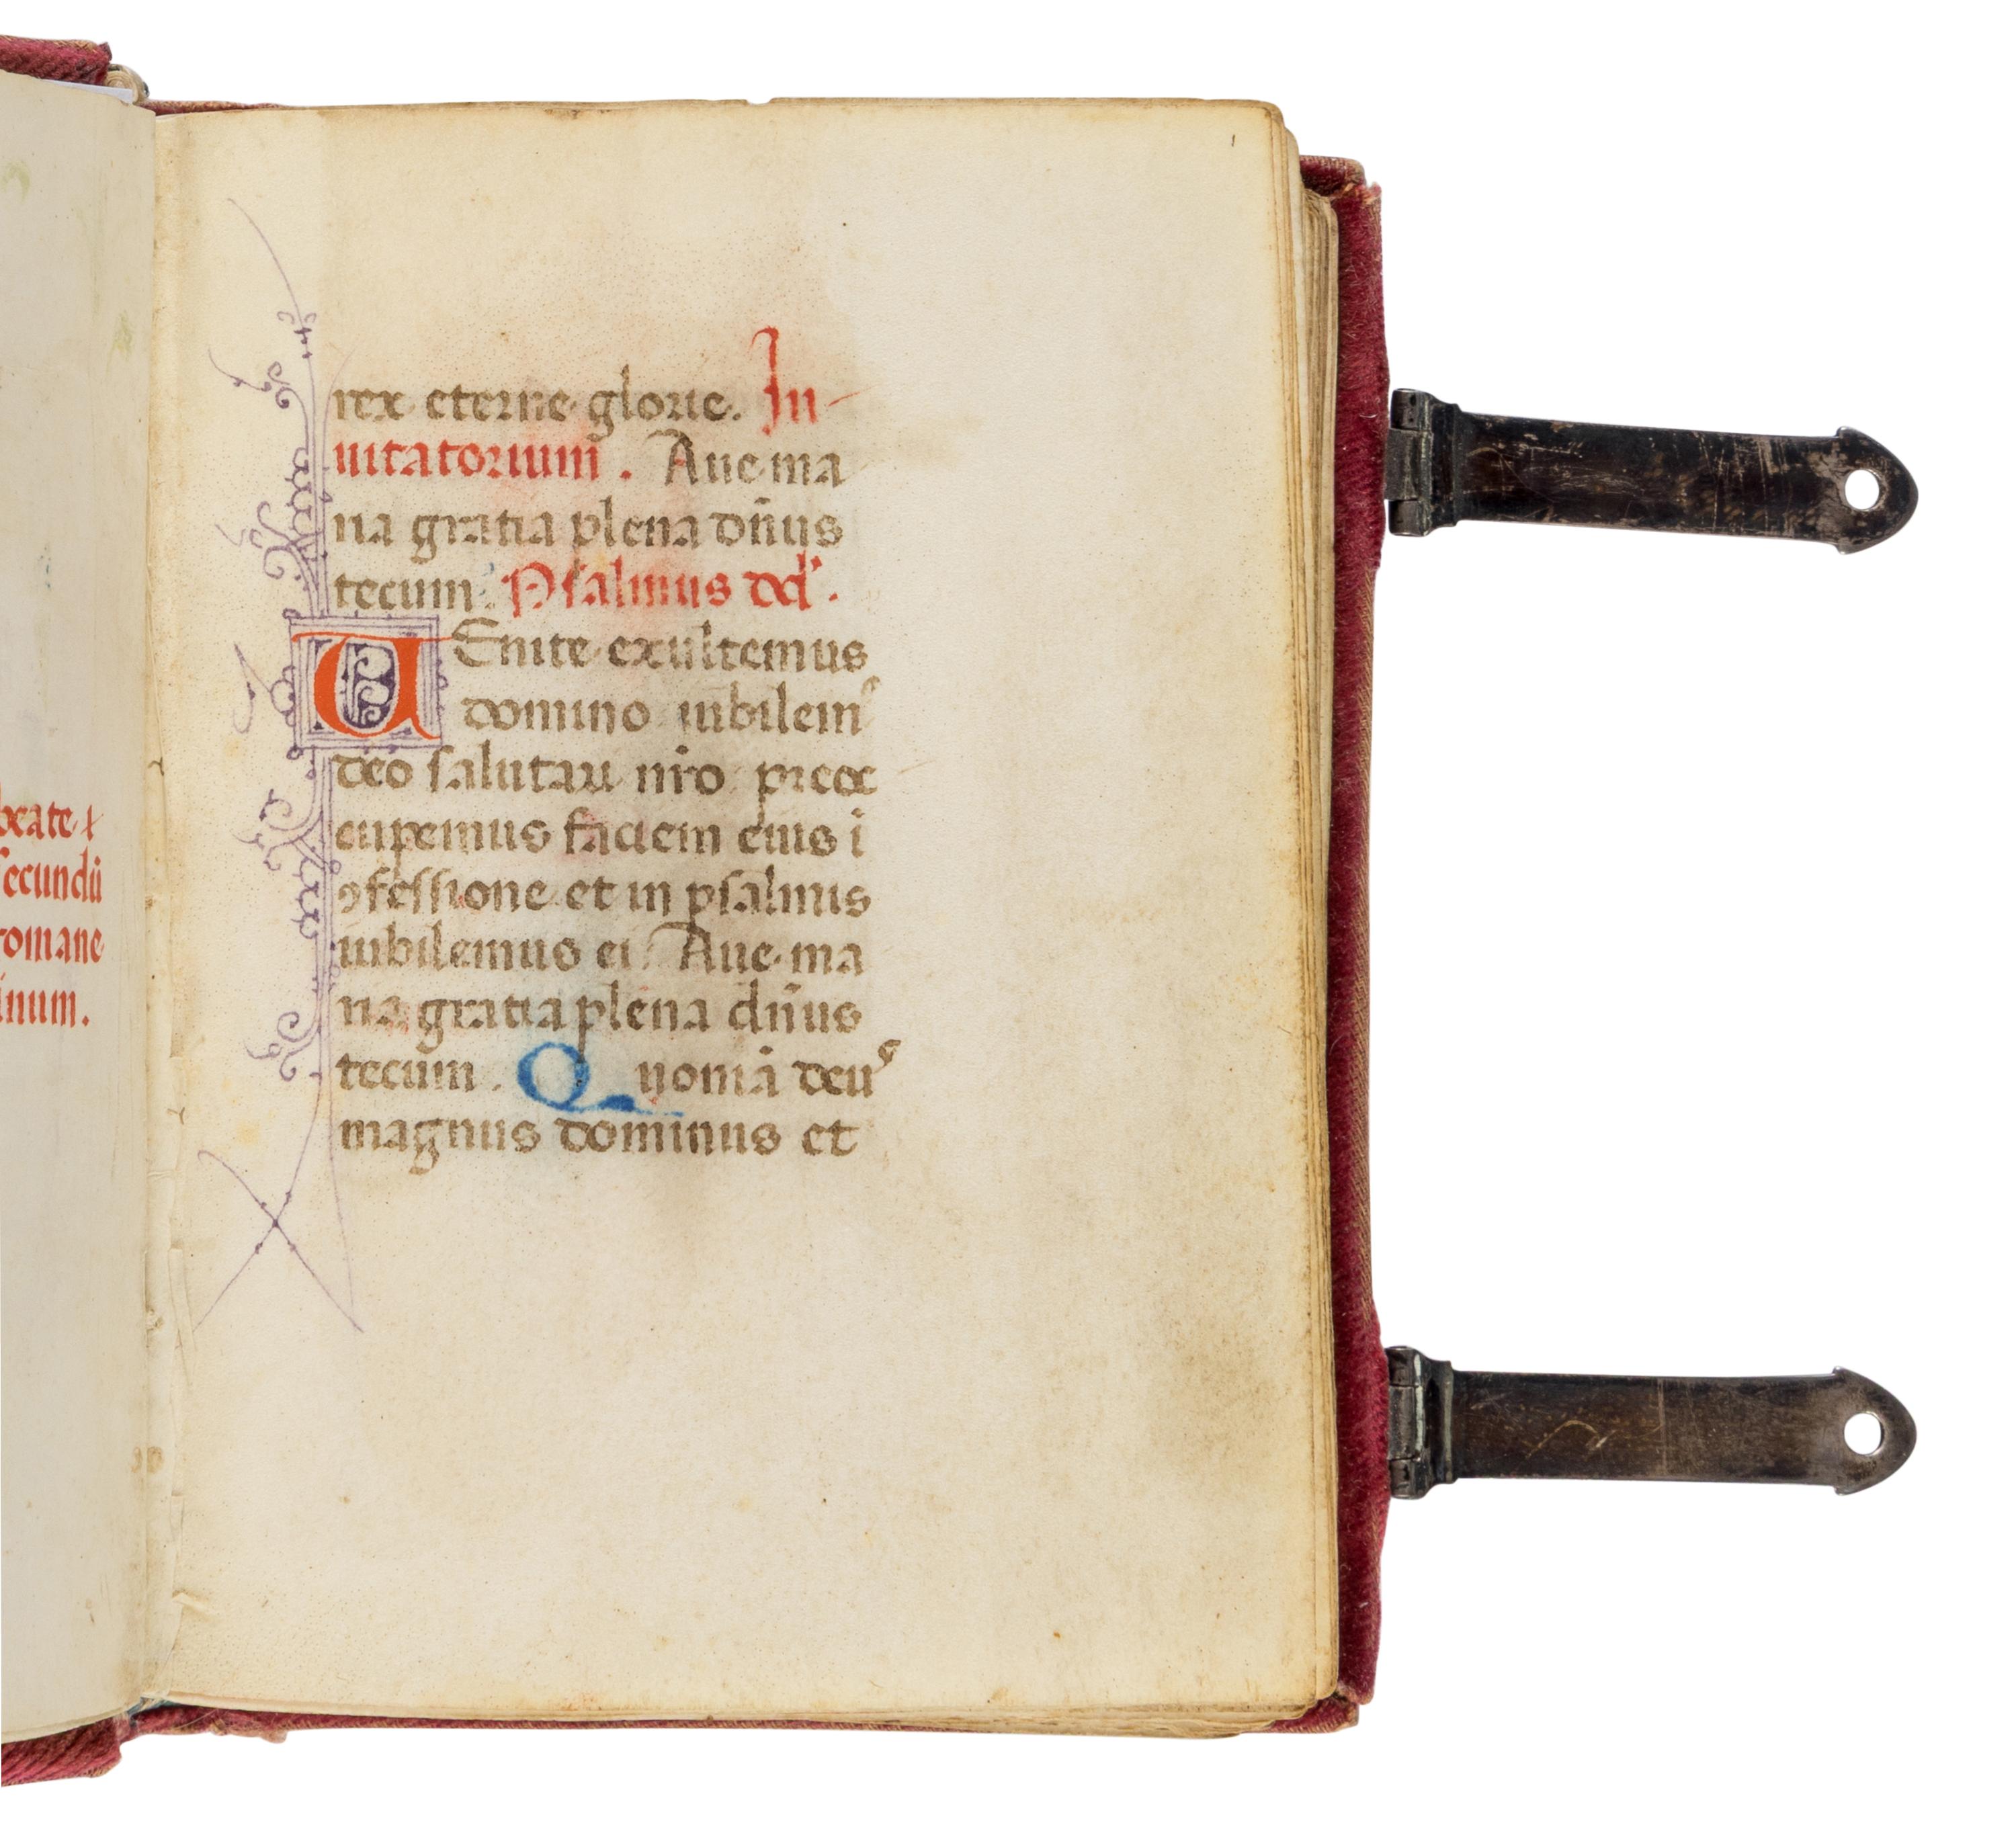 beate
secundū
romane
inum.
1
rex eterne glorie. In-
uitatorium. Aue ma
ria gratia plena dn̄us
tecum. Psalmus dd'.
UEnite exultemus
domino iubilem⁹
deo salutari nr̄o preoc
cupemus faciem eius i
ꝯfessione et in psalmis
iubilemus ei. Aue ma
ria gratia plena dn̄us
tecum. Quoniā deu⁹
magnus dominus et